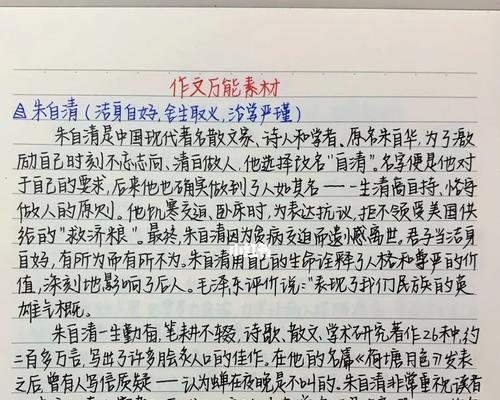 作文万能素材
朱自清(洁身自好、舍生取义、治学严谨)
朱自清是中国现代著名散文家、诗人和学者。原名朱自华,为了激
励自己时刻不忘志向、清白做人,他选择改名“自清”。名字便是他对
于自己的要求,后来他也确实做到了人如其名——一生清高自持、恪守
做人的原则。他饥寒交迫、卧床时,为表达抗议,拒不领受美国供
给的“救济粮”。最终,朱自清因为贫病交迫而遗憾离世。君子当洁身
自好,有所为而有所不为。朱自清用自己的生命诠释了人格和尊严的价
值,深刻地影响了后人。毛泽东评价说:“表现了我们民族的英
雄气概。
朱自清一生勤奋,笔耕不辍,诗歌、散文、学术研究著作26种,约
二百多万言,写出了许多脍炙人口的佳作。在他的名篇《荷塘月色》发表
之后,曾有人写信质疑——认为蝉在夜晚是不叫的。朱自清非常重视读者
小红书